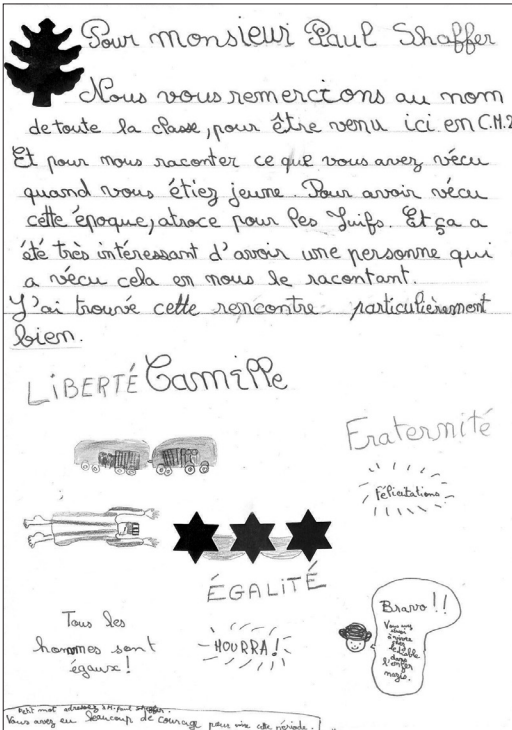 Pour monsieur Paul Shaffer
Nous vous remercions au nom
de toute la classe, pour être venu ici en C.M.2
Et pour nous raconter ce que vous avez vécu
quand vous étiez jeune. Pour avoir vécu
cette époque, atroce pour les Juifs. Et ça a
été très intéressant d'avoir une personne qui
a vécu cela en nous le racontant.
J'ai trouvé cette rencontre particulièrement
bien.
LIBERTÉ Camille
Fraternité
Félicitations
ÉGALITÉ
Tous les
hommes sont
égaux !
HOURRA !
Bravo !!
Vous avez
dans
l'enfer
nazie.
Petit mot adressé à M. Paul Shaffer.
Vous avez eu beaucoup de courage pour vivre cette période.